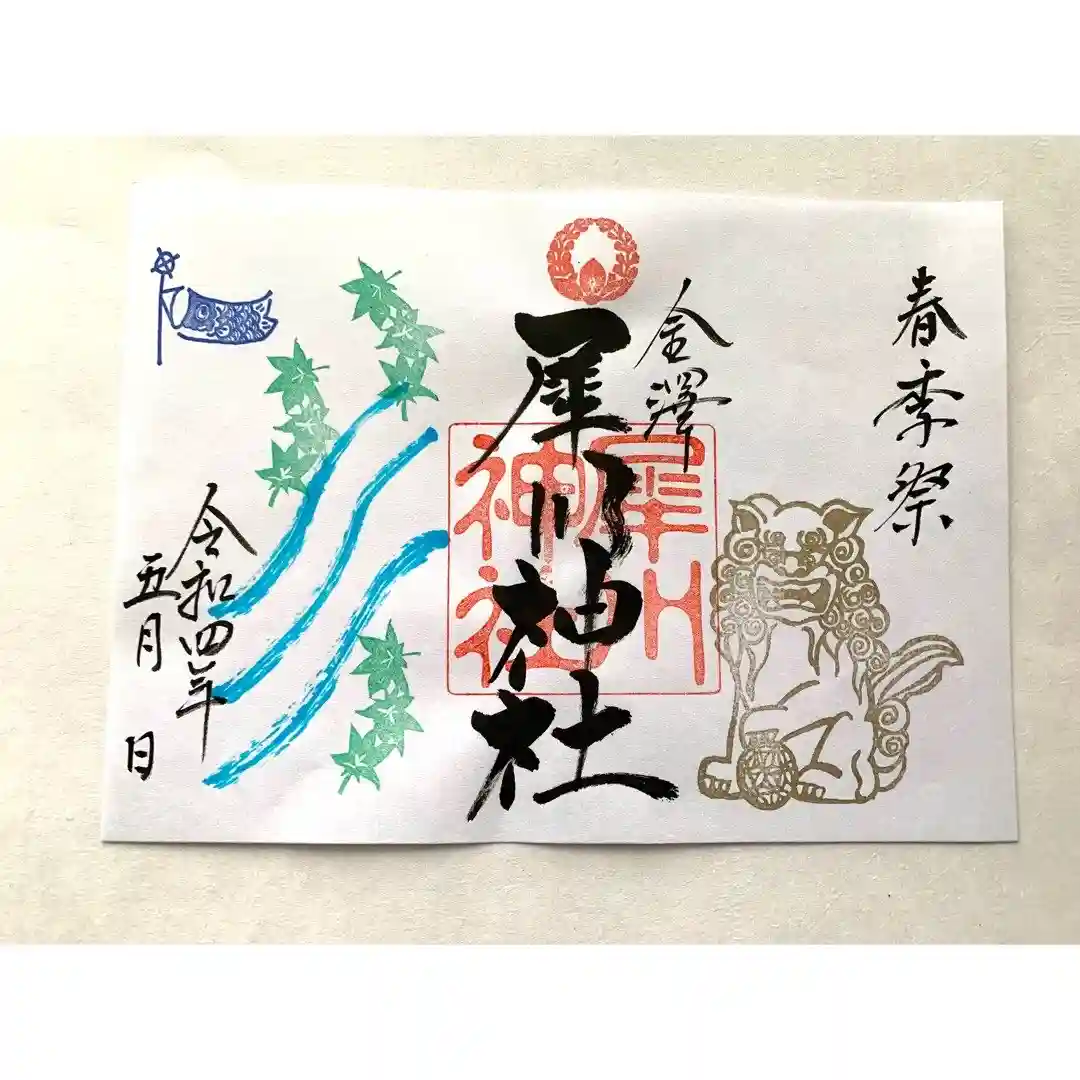 春季祭
金澤
犀川神社
犀川
神社
令和四年
五月 日